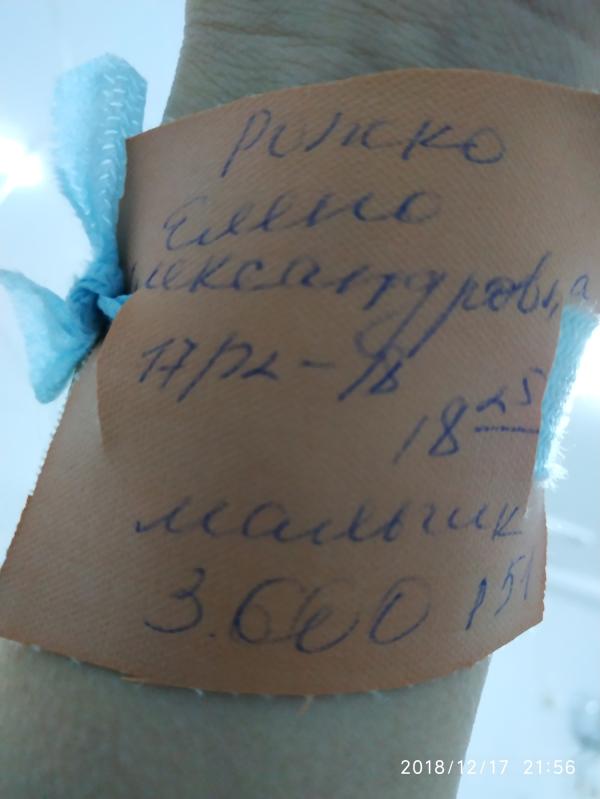 Рожко
Елена
лександровна
17/12-18
18 25
мальчик
3.660 р 51
2018/12/17 21:56